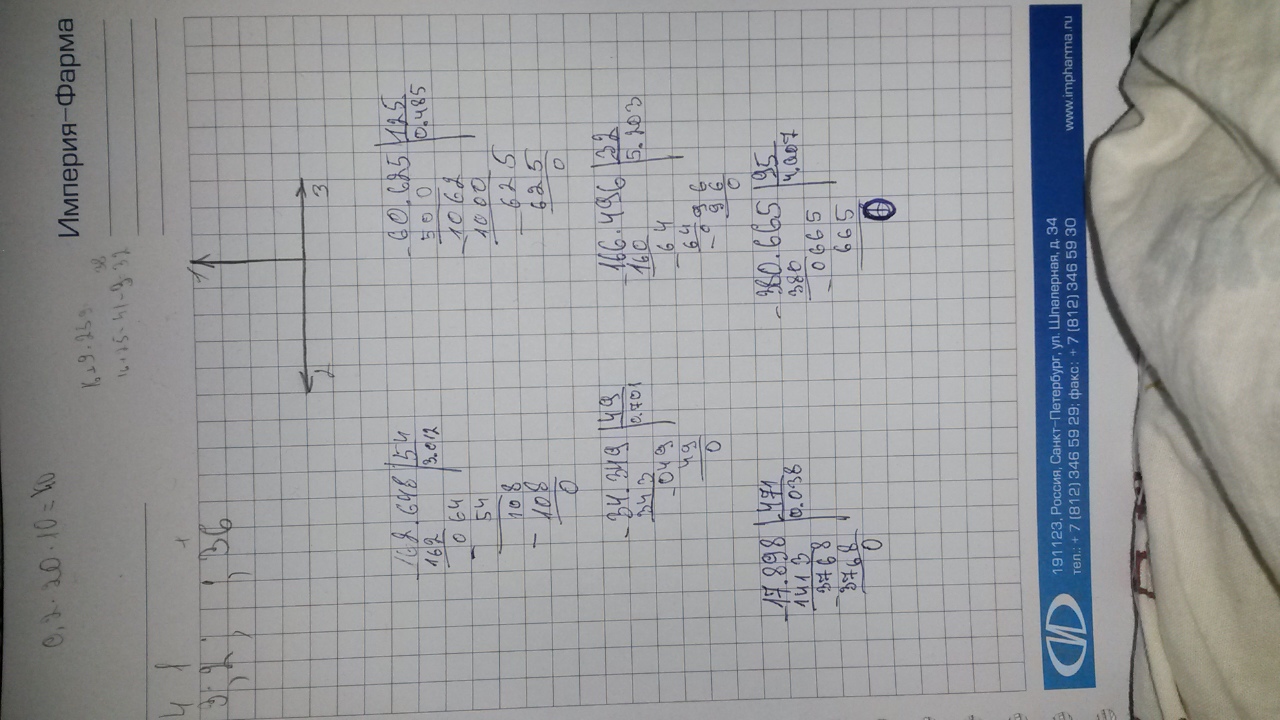 Империя-Фарма
0,2 · 20 · 10 = 40
1
2 3
168.648 | 54
162 3.012
0 64
54
108
108
0
60.625 | 125
500 0.485
1062
1000
625
625
0
34.349 | 49
343 0.701
049
49
0
166.496 | 32
160 5.203
64
64
096
96
0
17.898 | 471
1413 0.038
3768
3768
0
380.665 | 95
380 4,007
0665
665
0
191123, Россия, Санкт-Петербург, ул. Шпалерная, д. 34
тел.: + 7 (812) 346 59 29; факс: + 7 (812) 346 59 30
www.impharma.ru